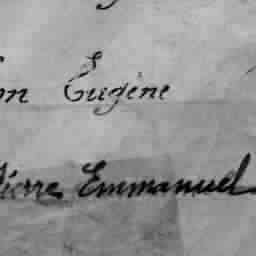 on Eugène
Pierre Emmanuel